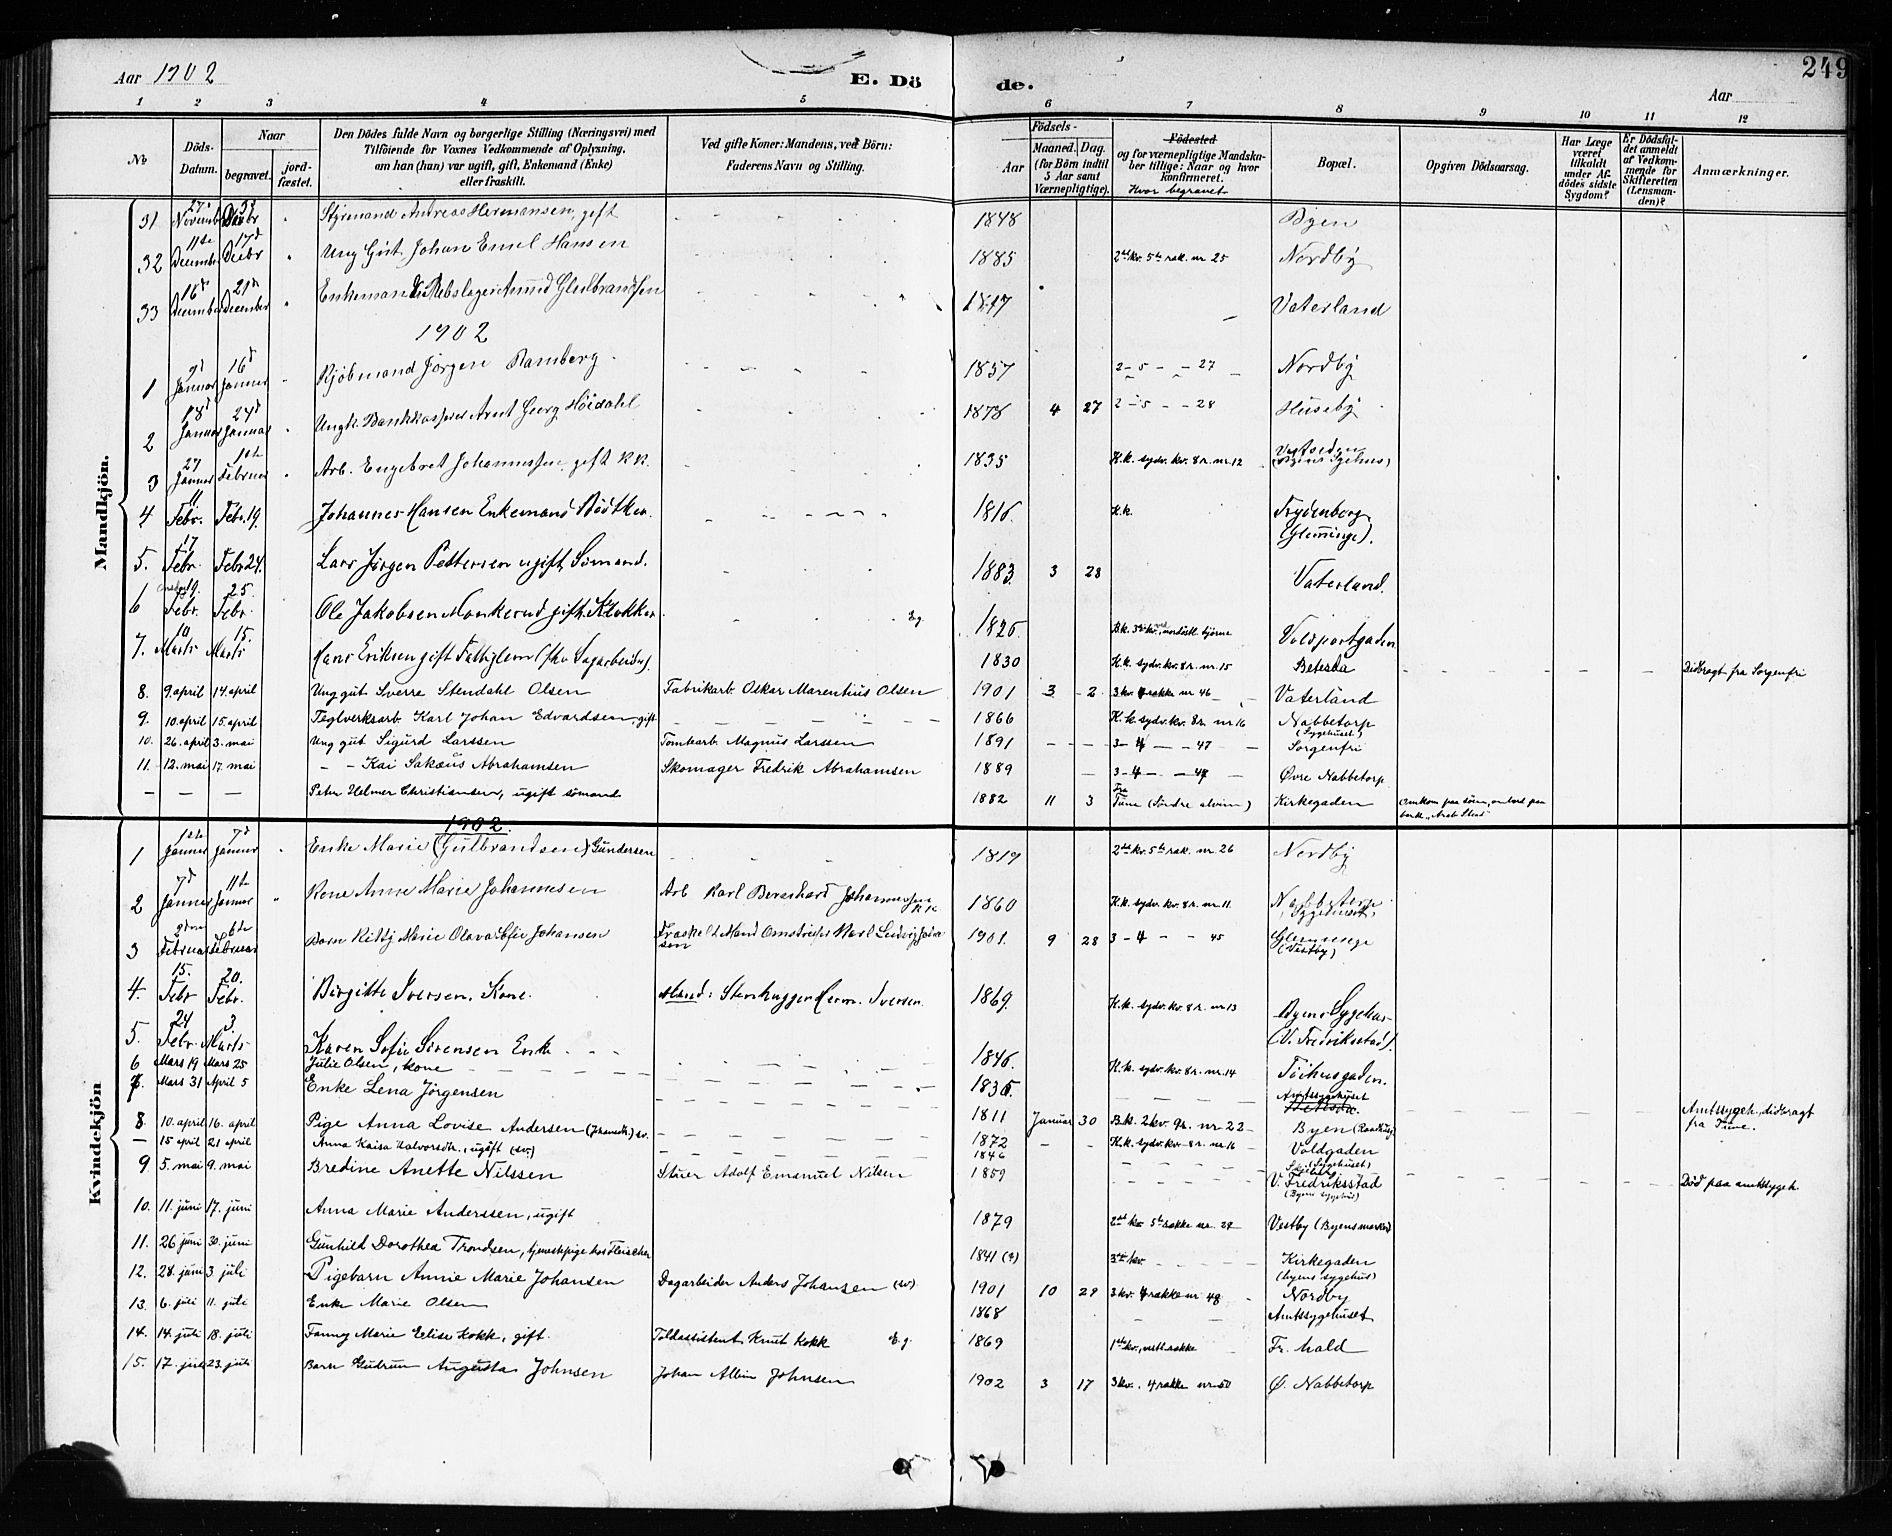 Aar 1902
E. Dö de.
Aar
249
1 2 3 4 5 6 7 8 9 10 11 12
No
Döds-Datum.
Naar
begravet.
jord-fæstet.
Den Dödes fulde Navn og borgerlige Stilling (Næringsvei) med
Tilföiende for Voxnes Vedkommende af Oplysning,
om han (hun) var ugift, gift, Enkemand (Enke)
eller fraskilt.
Ved gifte Koner: Mandens, ved Börn:
Faderens Navn og Stilling.
Födsels-
Aar
Maaned. Dag.
(for Börn indtil
5 Aar samt
Værnepligtige).
Födested
og for værnepligtige Mandska-
ber tillige: Naar og hvor
konfirmeret.
Hvor begravet
Bopæl.
Opgiven Dödsaarsag.
Har Læge
været
tilkaldt
under Af-
dödes sidste
Sygdom?
Er Dödsfal-
det anmeldt
af Vedkom-
mende for
Skifteretten
(Lensman-
den)?
Anmærkninger.
Mandkjön.
31 Novemb Decbr Styrmand Andreas Hermansen, gift 1848 Byen
32 11te Decemb 17d Decbr Ung Gut Johan Emil Hansen 1885 2det kv. 5te rak. nr 25 Nordby
33 16d Decembr 21d December Enkemand Rebslager Amund Gulbrandsen 1847 Vaterland
1902
1 9d Januar 16d Januar Kjöbmand Jörgen Ramberg 1857 2 - 5 - - 27 Nordby
2 18d Januar 24d Januar Ungk. Bankkasserer Arnt Georg Höidahl 1878 4 27 2 - 5 - - 28 Huseby
3 27 Januar 1ste Februar Arb. Engebret Johannessen, gift K.K. 1835 K.k. sydv. kv. 8 r. nr. 12
4 11 Febr. Febr. 19. Johannes Hansen Enkemand Bödtker. 1816. K.k. Trydenborg (Glemminge).
5. 17 Febr. Febr 24. Lars Jörgen Pettersen ugift, Sömand. 1883. 3 28 Vaterland.
6 19. Febr. 25. Febr. Ole Jakobsen Monkerud gift. Klokker E.g. 1825. B.k. 3die kv. ved nordöstl. hjörne Voldportgaden
7. 10 Marts 15. Marts Hans Eriksen gift Fattiglem (fhv. Sagarbeider). 1830 K.k. sydv. kv. 8 r. nr. 15 Betesda Didbragt fra Sorgenfri
8. 9. april 14. april Ung gut Sverre Stendahl Olsen Fabrikarb. Oskar Marentius Olsen 1901 3 2 3 kv. 4 række nr 46 Vaterland
9. 10. april 15. april Teglverksarb. Karl Johan Edvardsen, gift 1866 K.k. sydv. kv. 8 r. nr 16 Nabbetorp (Sygehuset)
10. 26. april 3. mai Ung gut Sigurd Larssen Tomtearb. Magnus Larssen 1891 3 - 4 - - 47 Sorgenfri
11. 12. mai 17. mai - - Kai Sakæus Abrahamsen Skomager Fredrik Abrahamsen 1889 3 - 4 - - 49 Øvre Nabbetorp
— — — Peter Helmer Christiansen, ugift sömand 1882 11 3 Fra Tune (Söndre alvim) Kirkegaden Omkom paa söen, ombord paa bark "Arab Steed"
Kvindekjön
1902.
1 1ste Januar 7d Januar Enke Marie (Gulbrandsen) Gundersen 1819 2det kv. 5te rak. nr. 26 Nordby
2 7d Januar 11te Januar Kone Anne Marie Johannesen Arb Karl Bernhard Johannessen K.K. 1860 K.k. sydv. kv. 8 r. nr 11. Nabbetorp (Sygehuset)
3 Februar 6te Februar Barn Kitty Marie Olava Johansen Fraskelt Mand Karl Ludvig Johansen 1901. 9 28 3 - 4 - - 45 Glemminge (Vestby)
4. 15. Febr 20. Febr. Birgitte Iversen. Kone. Mand: Stenhugger Herm. Iversen. 1869. K.k. sydv. kv. 8 r. nr 13 Byens Sygehus (V. Fredriksstad).
5. 24 Febr. 3. Marts Karen Sofie Sörensen Enke 1846. K.k. sydv. kv. 8 r. nr. 14 Töihusgaden.
6 Mars 19 Mars 25 Julie Olsen, kone 1835. Amtssygehuset
7. Mars 31 April 5 Enke Lena Jörgensen 1811 Januar 30 B.k. 2 kv. 9 r. nr. 22 Byen Amtssygeh., didbragt fra Tune.
8. 10. april 16. april Pige Anna Lovise Andersen sv. 1872 K.k. sydv. kv. 8 r. nr 16 Voldgaden (Sygehuset)
— 15 april 21 april Anna Kaisa Halvorsdtr., ugift (sv.) 1846
9 5. mai 9. mai Bredine Anette Nilssen Stuer Adolf Emanuel Nilsen 1859 V. Fredriksstad (Byens Sygehus) Död paa amtssygeh.
10. 11. juni 17. juni Anna Marie Anderssen, ugift 1879 2det kv 5te række nr. 29 Vestby (Byens marker)
11. 26 juni 30. juni Gunhild Dorothea Trondsen, tjenestpige hos Fleischer 1841 (?) 3die kv. Kirkegaden (byens sygehus)
12. 28. juni 3. juli Pigebarn Annie Marie Johansen Dagarbeider Anders Johansen (sv). 1901 10 29 3 kv. 4 række nr 48 Nordby
13. 6. juli 11. juli Enke Marie Olsen 1868 Amtssygehuset
14. 14. juli 18. juli Fanny Marie Elise Kokk, gift. Toldassistent Knut Kokk E.g. 1869 1ste kv., vestl. række Fr. hald
15. 17. juli 23. juli Barn Gudrun Augusta Johnsen Johan Albin Johnsen 1902 3 17 3 kv. 4 række nr. 50 Ø. Nabbetorp